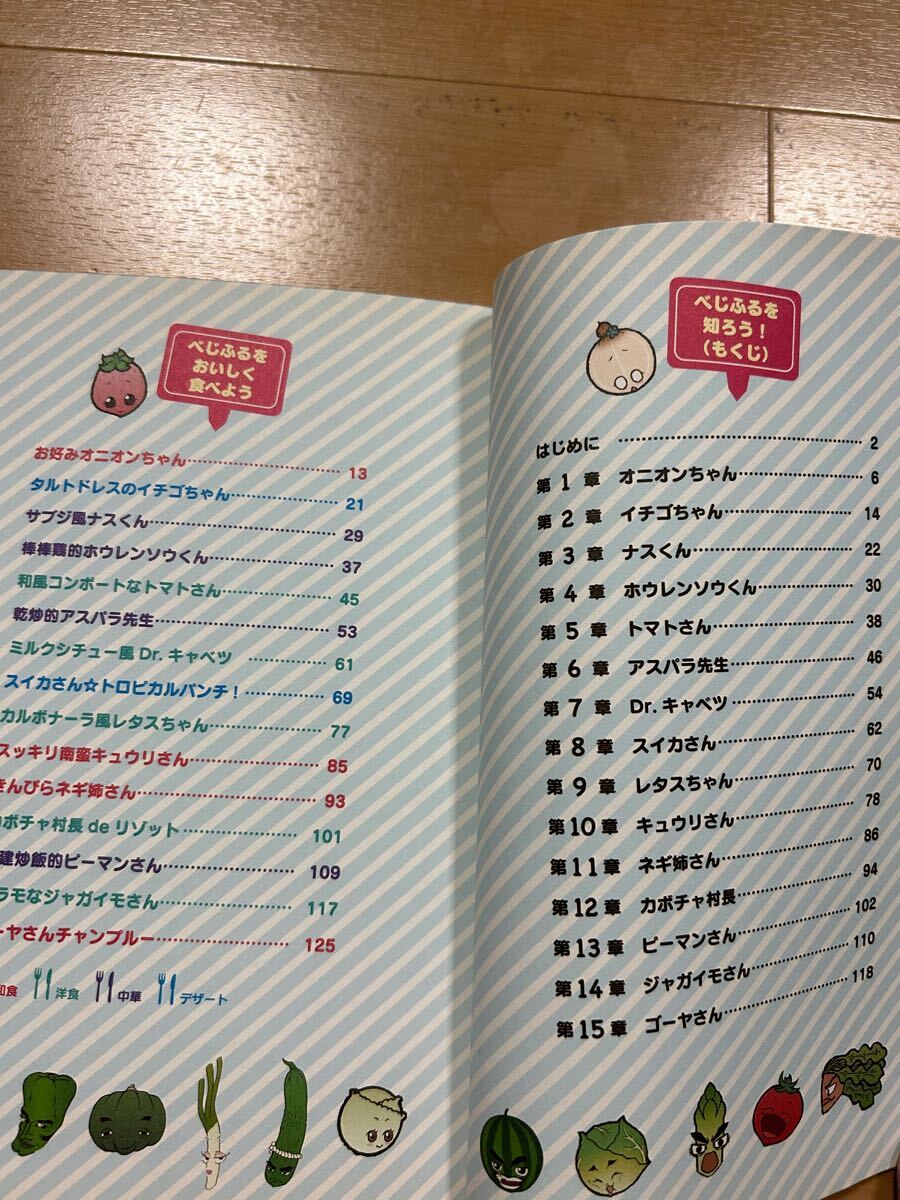 べじふるを
知ろう！
（もくじ）
はじめに…………………………………2
第1章 オニオンちゃん……………………6
第2章 イチゴちゃん……………………14
第3章 ナスくん……………………22
第4章 ホウレンソウくん……………………30
第5章 トマトさん……………………38
第6章 アスパラ先生……………………46
第7章 Dr.キャベツ……………………54
第8章 スイカさん……………………62
第9章 レタスちゃん……………………70
第10章 キュウリさん……………………78
第11章 ネギ姉さん……………………86
第12章 カボチャ村長……………………94
第13章 ピーマンさん……………………102
第14章 ジャガイモさん……………………110
第15章 ゴーヤさん……………………118
べじふるを
おいしく
食べよう
お好みオニオンちゃん……………………13
タルトドレスのイチゴちゃん……………………21
サブジ風ナスくん……………………29
棒棒鶏的ホウレンソウくん……………………37
和風コンポートなトマトさん……………………45
乾炒的アスパラ先生……………………53
ミルクシチュー風Dr.キャベツ……………………61
スイカさん☆トロピカルパンチ！……………………69
カルボナーラ風レタスちゃん……………………77
スッキリ南蛮キュウリさん……………………85
きんぴらネギ姉さん……………………93
カボチャ村長deリゾット……………………101
建炒飯的ピーマンさん……………………109
ラモなジャガイモさん……………………117
ーヤさんチャンプルー……………………125
和食 洋食 中華 デザート